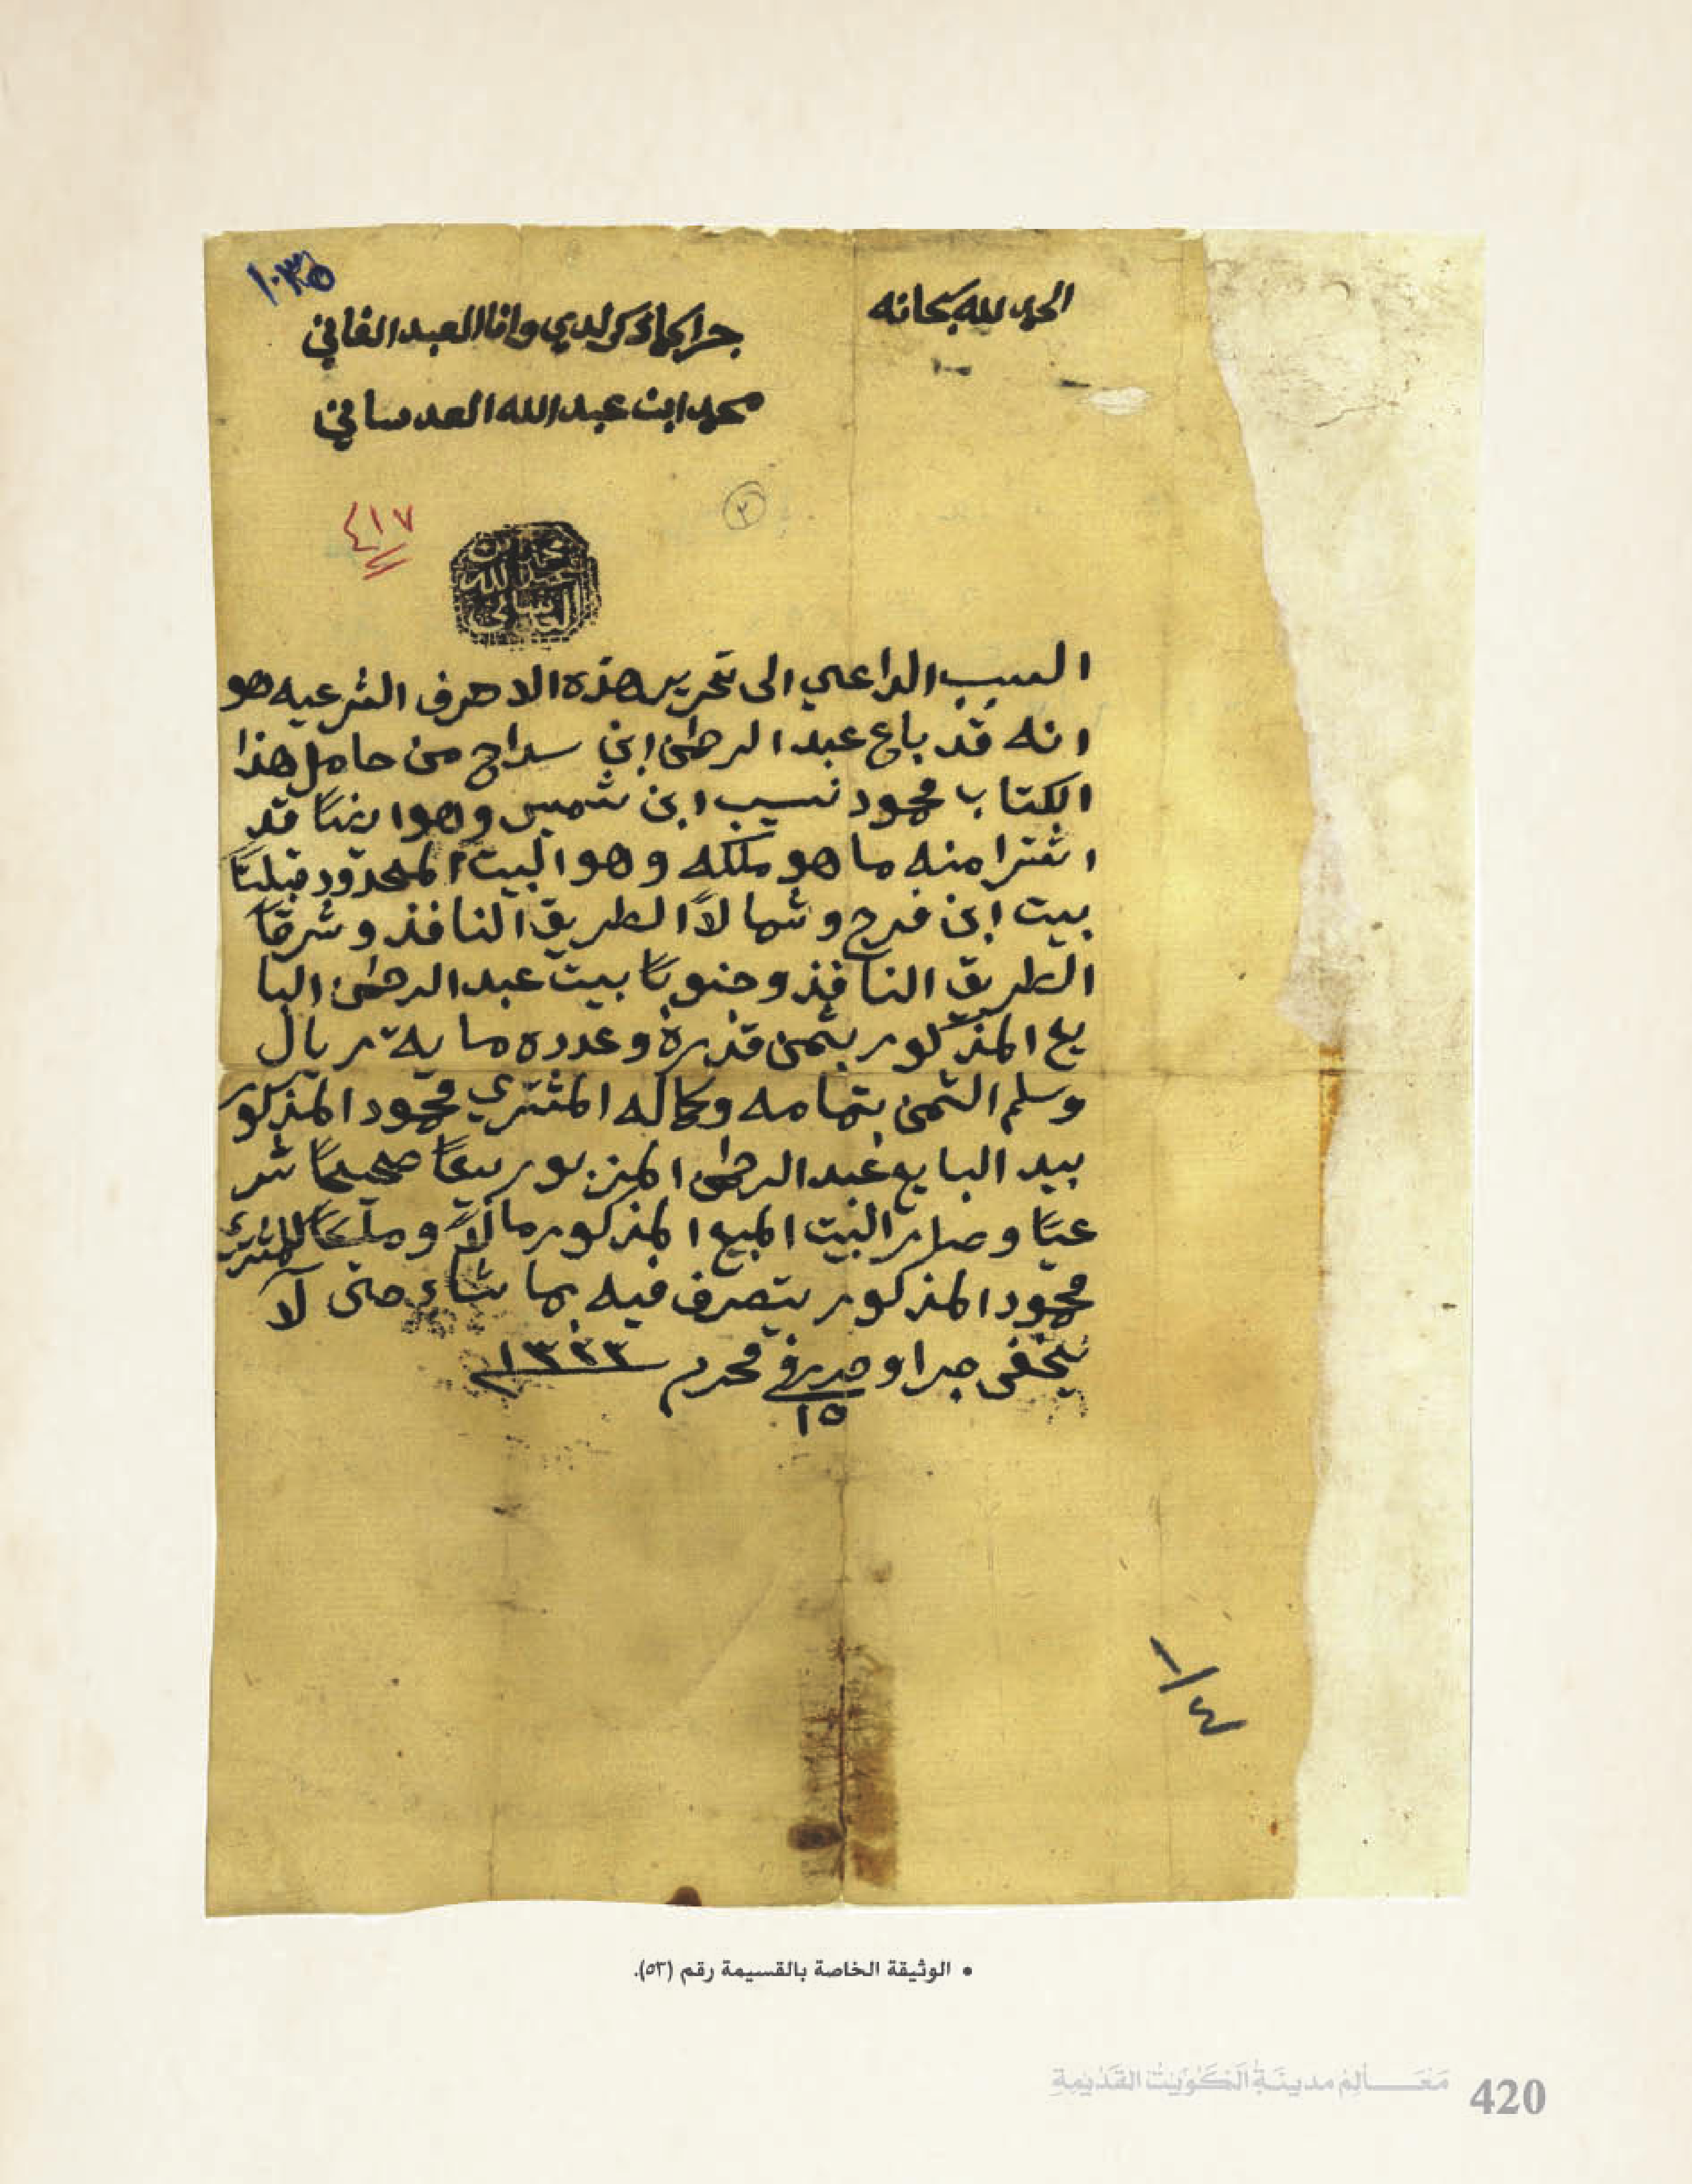 ١٠٣٥
الحمد لله سبحانه
جرا كما ذكر لدي وانا العبد الفاني
محمد ابن عبدالله العدساني
٢
٤١٧
محمد بن
عبد الله
العدساني
السبب الداعي الى تحرير هذه الاحرف الشرعيه هو
انه قد باع عبدالرحمٰن ابن سراج من حامل هذا
الكتاب محمود نسيب ابن شميس وهو ايضاً قد
اشترا منه ما هو ملكه وهو البيت المحدود قبلتاً
بيت ابن فرج وشمالاً الطريق النافذ وشرقاً
الطريق النافذ وجنوباً بيت عبدالرحمٰن البا
يع المذكور بثمن قدره وعدده مايه ريال
وسلم الثمن بتمامه وكماله المشتري محمود المذكور
بيد البايع عبدالرحمٰن المزبور بيعاً صحيحاً شر
عيّاً وصار البيت المبيع المذكور مالاً وملكاً للمشتري
محمود المذكور يتصرف فيه بما شاء حتى لآ
يخفى جرا وحرر في محرم ١٣٢٣
١٥
١/٤
• الوثيقة الخاصة بالقسيمة رقم (٥٣).
مَعَـــالِمُ مدينَـةِ الكُوَيْتْ القَدْيمِةِ 420